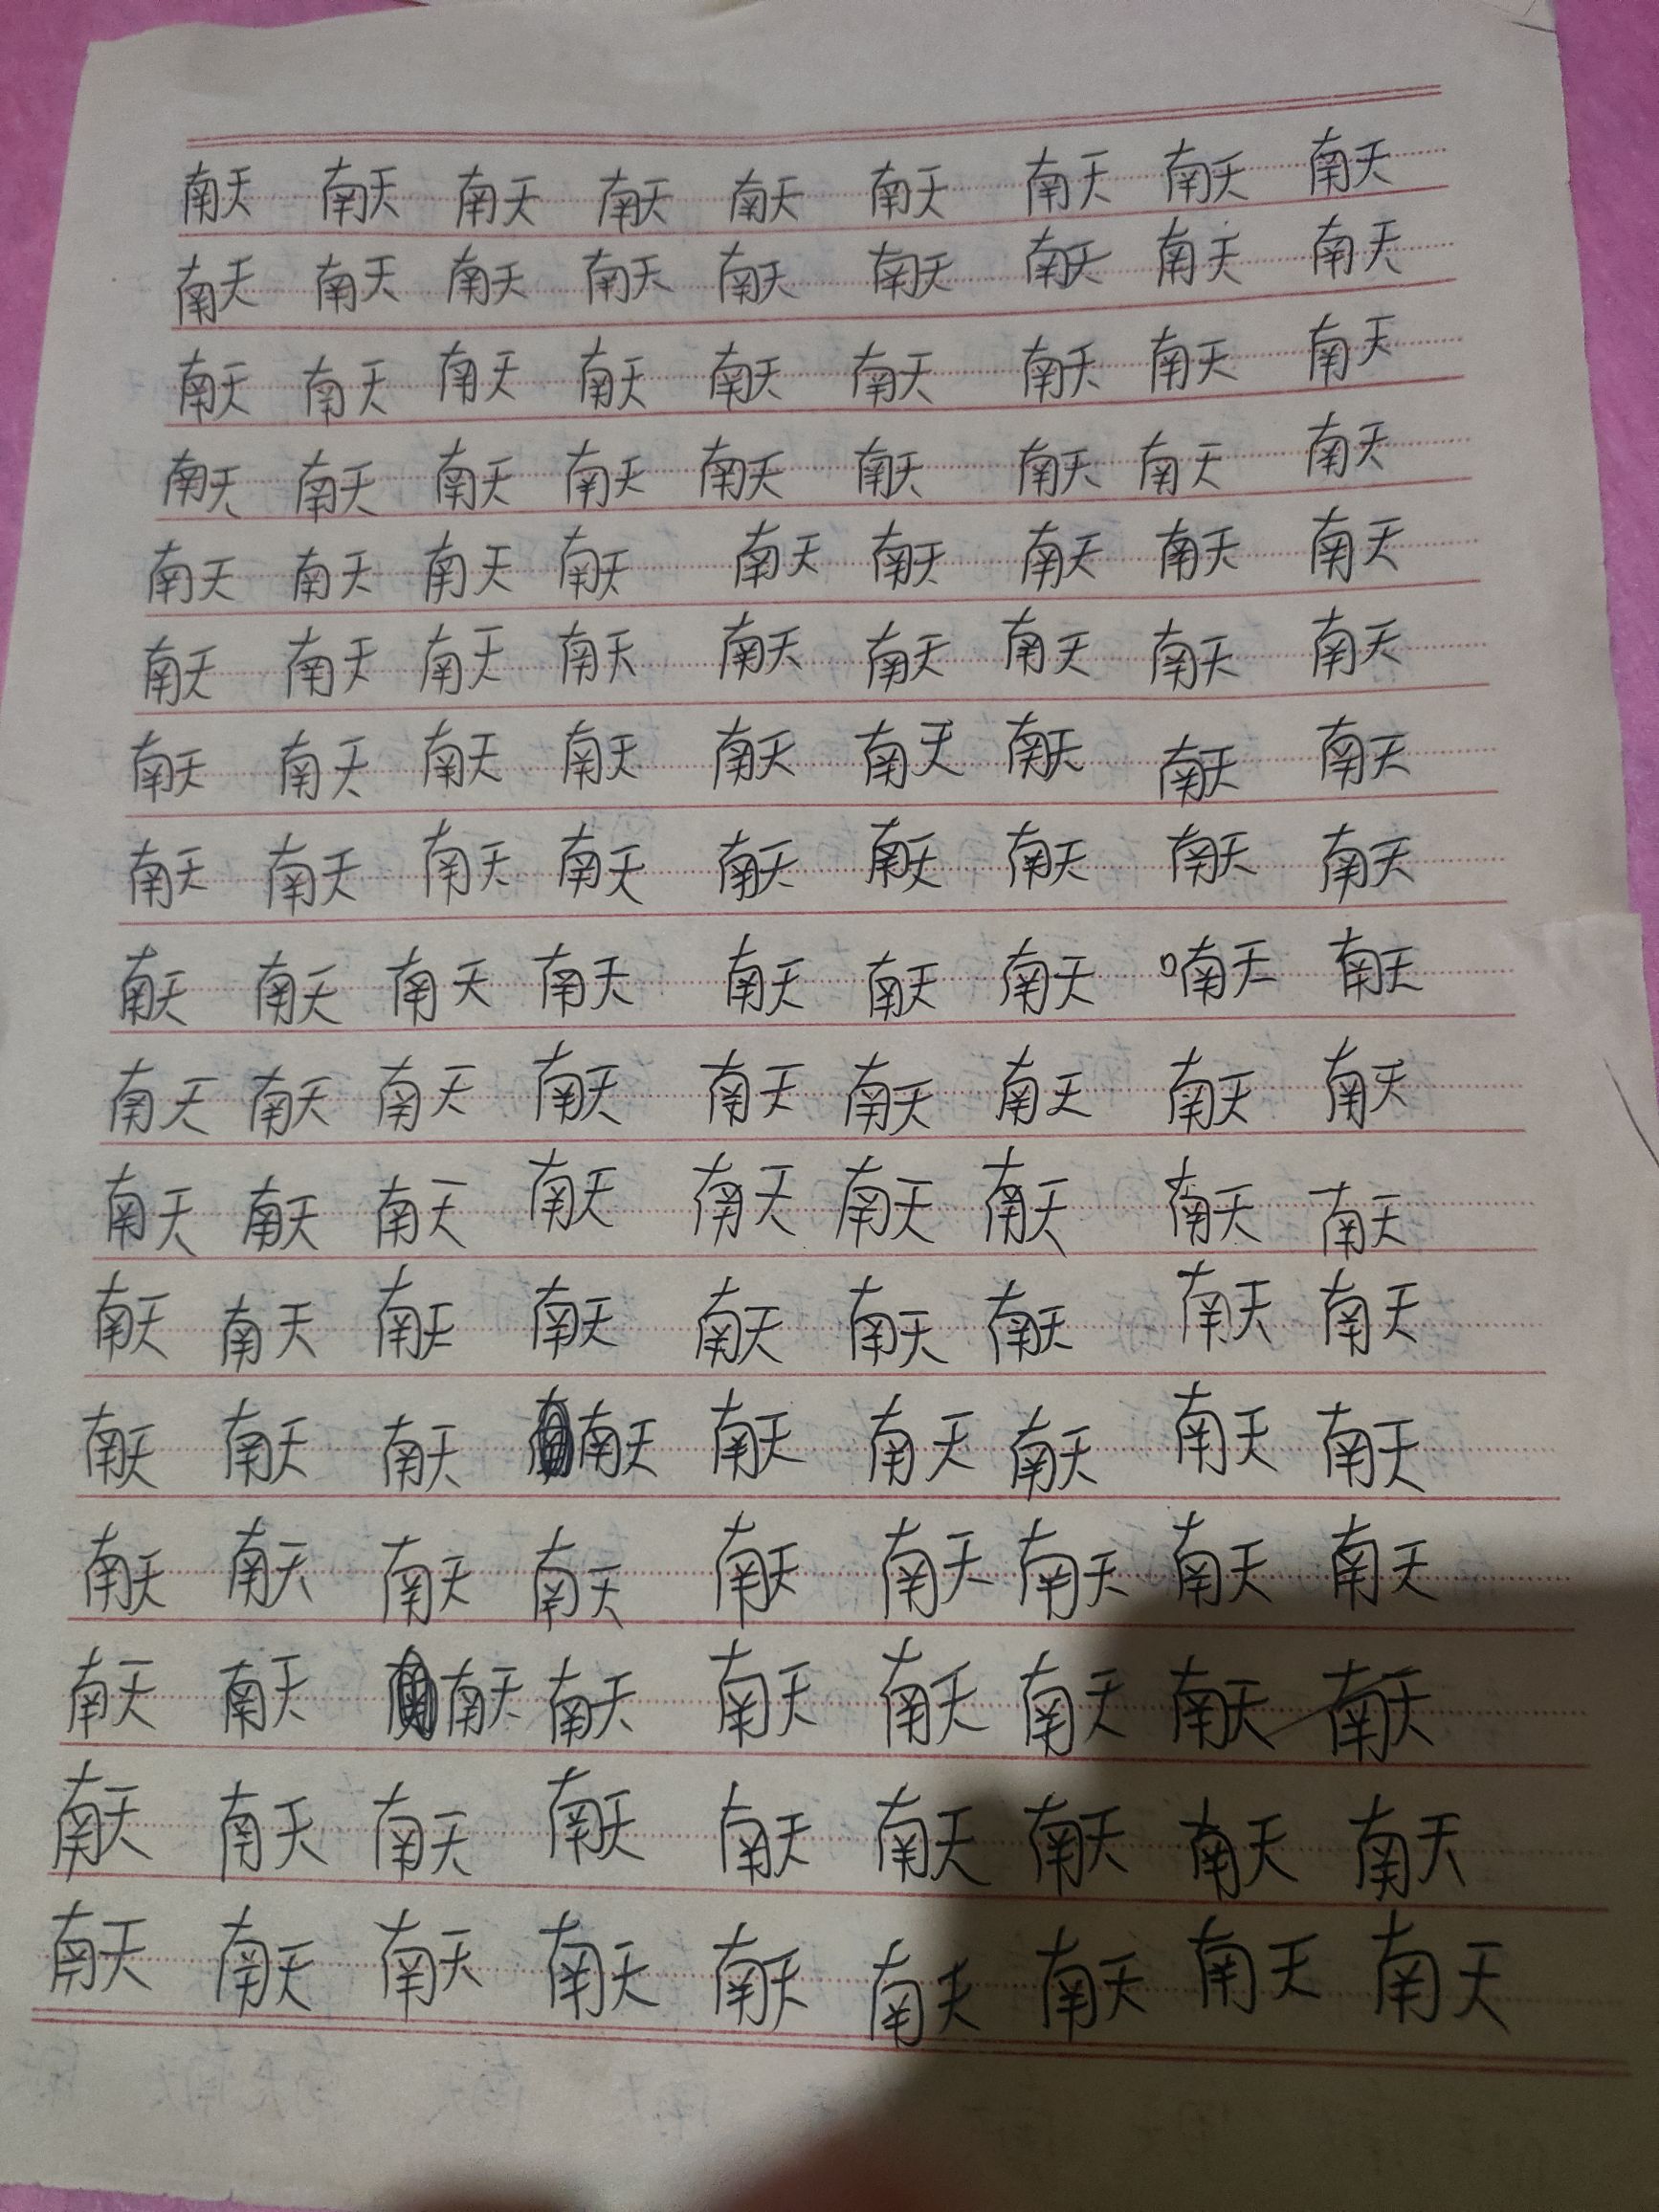 南天 南天 南天 南天 南天 南天 南天 南天 南天
南天 南天 南天 南天 南天 南天 南天 南天 南天
南天 南天 南天 南天 南天 南天 南天 南天 南天
南天 南天 南天 南天 南天 南天 南天 南天 南天
南天 南天 南天 南天 南天 南天 南天 南天 南天
南天 南天 南天 南天 南天 南天 南天 南天 南天
南天 南天 南天 南天 南天 南天 南天 南天 南天
南天 南天 南天 南天 南天 南天 南天 南天 南天
南天 南天 南天 南天 南天 南天 南天 喃天 南天
南天 南天 南天 南天 南天 南天 南天 南天 南天
南天 南天 南天 南天 南天 南天 南天 南天 南天
南天 南天 南天 南天 南天 南天 南天 南天 南天
南天 南天 南天 南天 南天 南天 南天 南天 南天
南天 南天 南天 南天 南天 南天 南天 南天 南天
南天 南天 南天 南天 南天 南天 南天 南天 南天
南天 南天 南天 南天 南天 南天 南天 南天 南天
南天 南天 南天 南天 南天 南天 南天 南天 南天